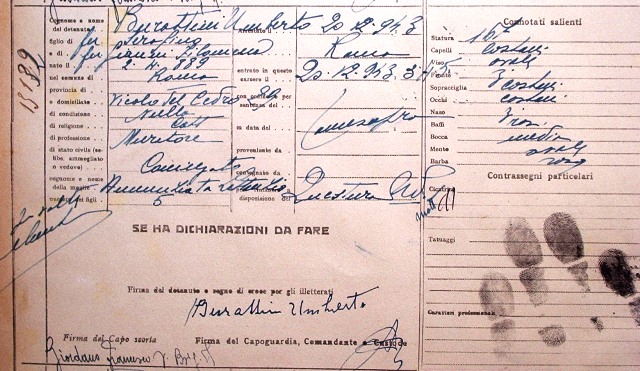 Cognome e nome del detenuto Burattini Umberto
figlio di fu Serafino
e di fu
2 · 4 · 889
nel comune di Roma
provincia di
e domiciliato Vicolo del Cedro 29
di condizione Nulla
di religione Catt
di professione Muratore
di stato civile (se libe, ammogliato o vedovo) Coniugato
cognome e nome della moglie Annunziata
numero dei figli
Arrestato il 20 12 943
Roma
entrato in questo carcere il 20 · 12 · 943
m data del
proveniente da
consegnato da
disposizione del Questura
13189
SE HA DICHIARAZIONI DA FARE
Firma del detenuto e segno di croce per gli illetterati
Burattini Umberto
Firma del Capo scorta
Firma del Capoguardia, Comandante e Custode
Giordano Francesco V. Brig.
Connotati salienti
Statura 167
Capelli castani
Viso ovale
Sopracciglia castani
Occhi castani
Naso
Baffi
Bocca media
Mento ovale
Barba rasa
Contrassegni particolari
Cicatrici
Tatuaggi
Caratteri professionali